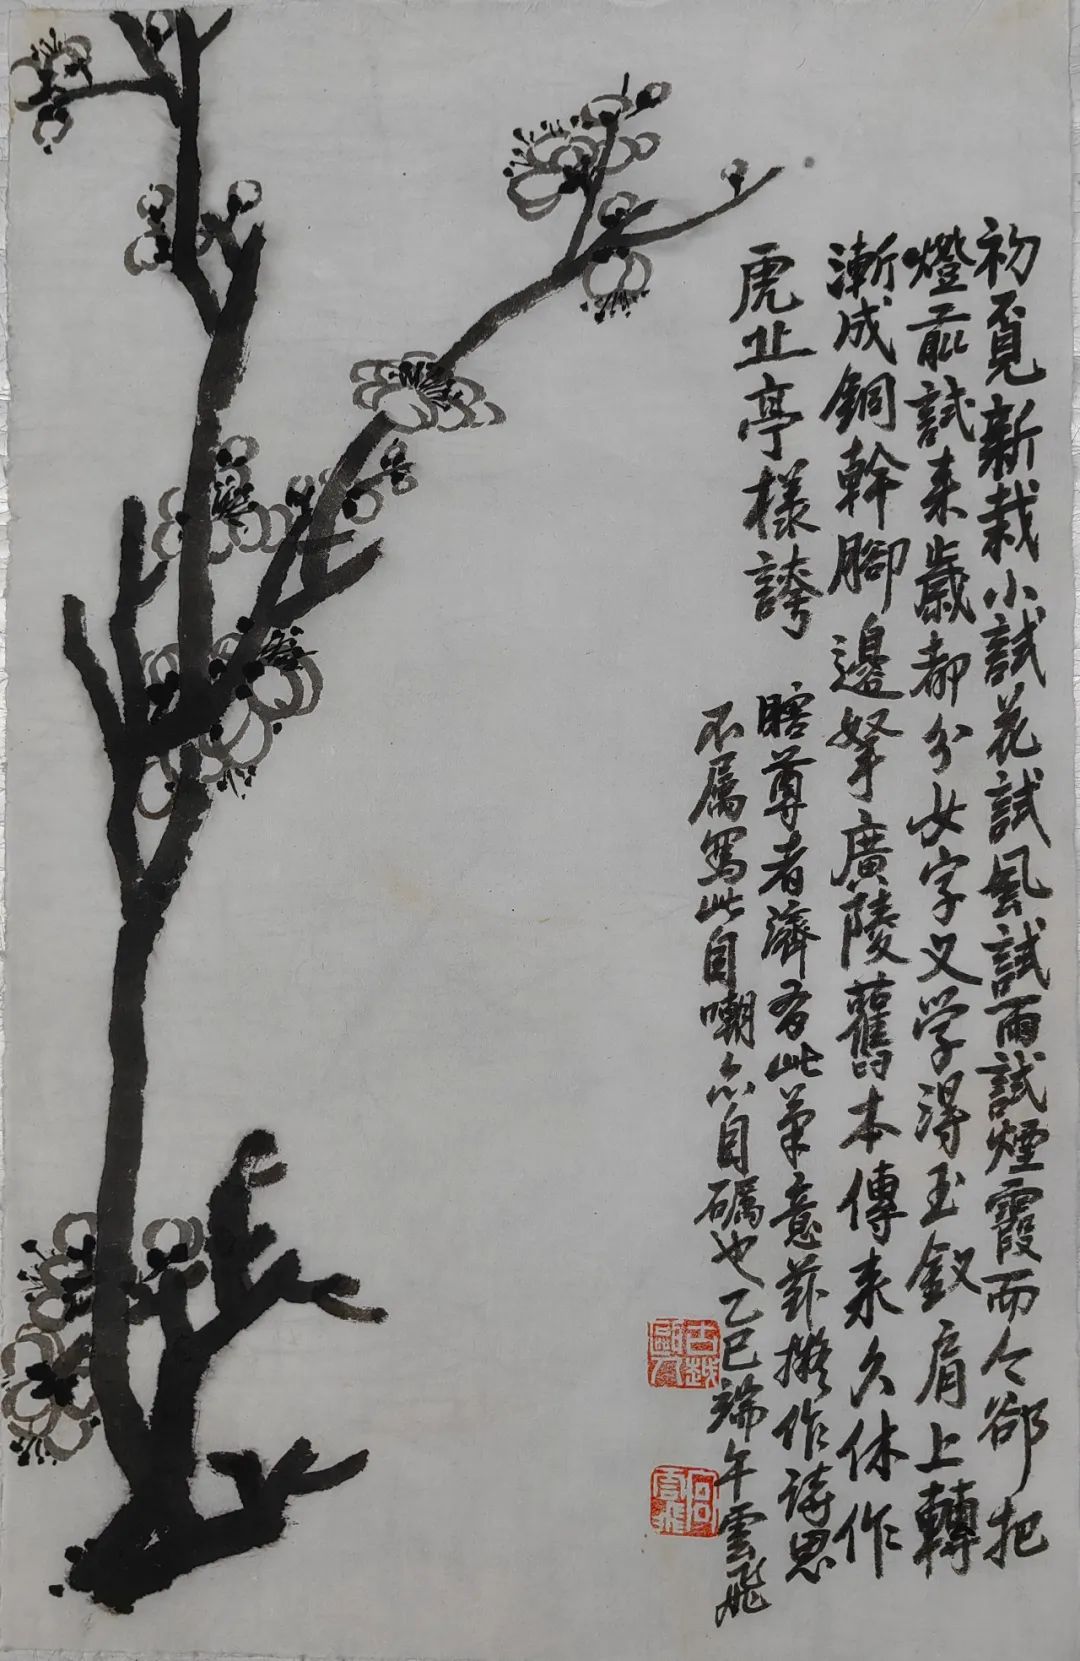 初覓新栽小試花試風試雨試煙霞而今卻把
燈前試來歲都分女字叉学得玉釵肩上轉
漸成銅幹腳邊拏廣陵舊本傳来久休作
虎止亭樣誇
瞎尊者濟有此筆意茲擬作詩思
不属寫此自嘲亦自礪也乙巳端午雲飛